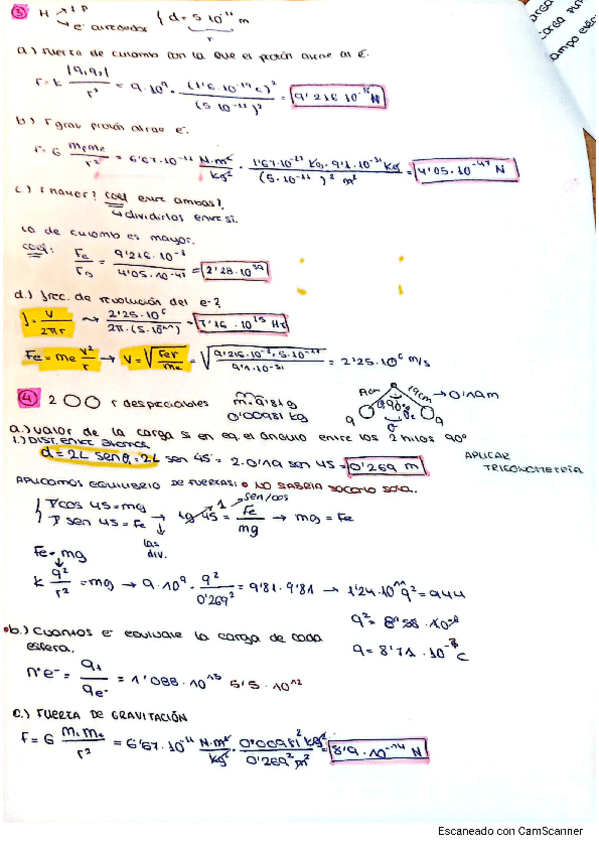 ③ H → 1 P
→ e⁻ alrededor { d = 5·10⁻¹¹ m
r
a) Fuerza de culomb con la que el protón atrae al e⁻.
F = K |q₁q₂| / r² = 9·10⁹ · (1'6·10⁻¹⁹ C)² / (5·10⁻¹¹)² = 9'216·10⁻⁸ N
b) F grav protón atrae e⁻.
F = G m₁m₂ / r² = 6'67·10⁻¹¹ N·m²/kg² · 1'67·10⁻²⁷ Kg · 9'1·10⁻³¹ Kg / (5·10⁻¹¹)² m² = 4'05·10⁻⁴⁷ N
c) F mayor? coci entre ambas?
↳ dividirlos entre sí.
La de culomb es mayor.
coci: Fe / Fg = 9'216·10⁻⁸ / 4'05·10⁻⁴⁷ = 2'28·10³⁹
d.) frec. de revolución del e⁻?
f = v / 2πr → 2'25·10⁶ / 2π·(5·10⁻¹¹) = 7'16·10¹⁵ Hz
Fe = me v²/r → v = √(Fe r / me) = √(9'216·10⁻⁸ · 5·10⁻¹¹ / 9'1·10⁻³¹) = 2'25·10⁶ m/s
④ 2 ○○ r despreciables m = 9'81 g
0'00981 kg
19cm → 0'19m
90°
q q
a.) valor de la carga si en eq. el ángulo entre los 2 hilos 90°
1.) DIST. ENTRE
d = 2L sen θ₁ = 2L sen 45 = 2·0'19 sen 45 = 0'269 m
APLICAR TRIGONOMETRÍA
APLICAMOS EQUILIBRIO DE FUERZAS: NO SABRÍA SACARLO SOLA..
{ T cos 45 = mg
{ T sen 45 = Fe
→ tg 45 = Fe / mg → mg = Fe
1 sen/cos
las div.
Fe = mg
K q²/r² = mg → 9·10⁹ · q²/0'269² = 9'81·9'81 → 1'24·10¹¹ q² = 944
q² =
q = 8'71·10⁻⁷ C
b.) Cuantos e⁻ equivale la carga de cada
esfera.
nºe⁻ = q₁ / qe⁻ = 1'088·10¹⁵ 5'5·10¹²
C.) FUERZA DE GRAVITACIÓN
F = G m₁·m₂ / r² = 6'67·10⁻¹¹ N·m²/kg² · 0'00981² kg² / 0'269² m² = 8'9·10⁻¹⁴ N
Escaneado con CamScanner